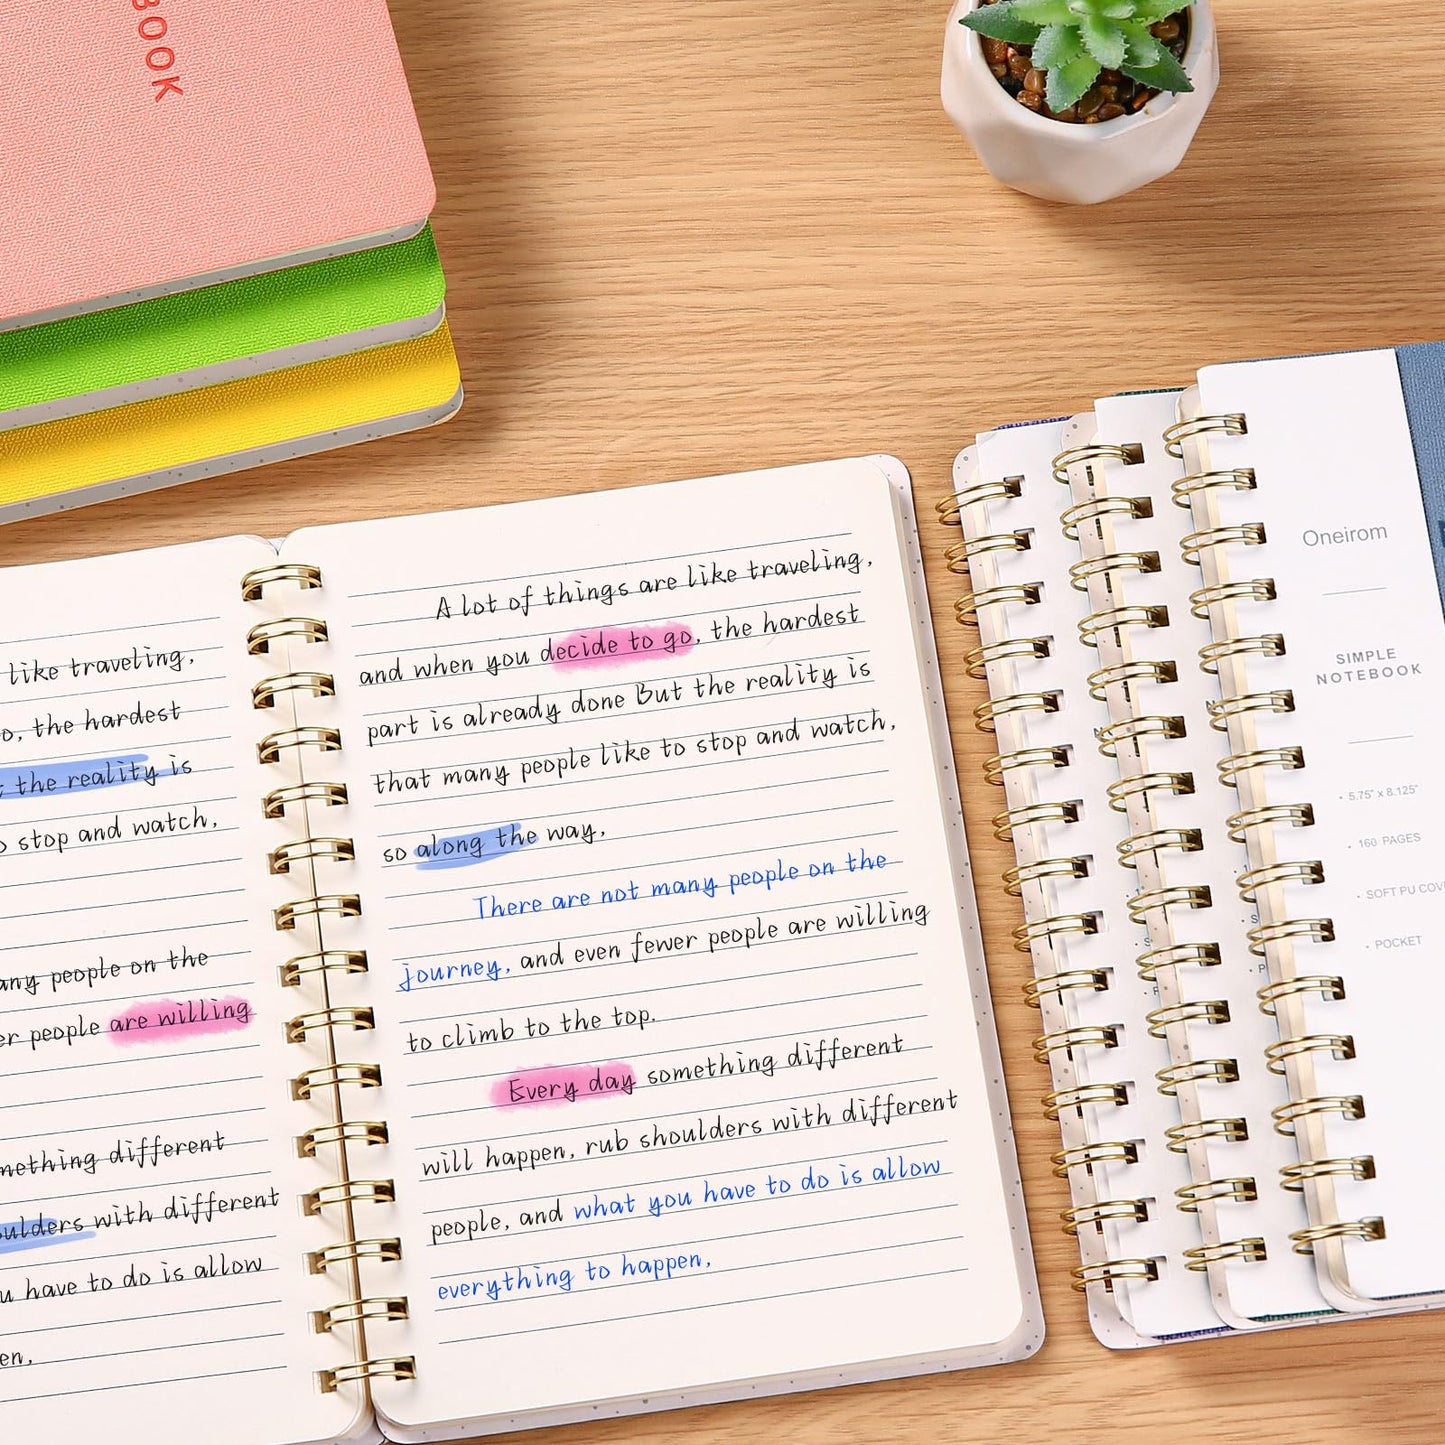 BOOK
like traveling,
o, the hardest
the reality is
stop and watch,
any people on the
er people are willing
mething different
oulders with different
u have to do is allow
en,
A lot of things are like traveling,
and when you decide to go, the hardest
part is already done But the reality is
that many people like to stop and watch,
so along the way,
There are not many people on the
journey, and even fewer people are willing
to climb to the top.
Every day something different
will happen, rub shoulders with different
people, and what you have to do is allow
everything to happen,
Oneirom
SIMPLE
NOTEBOOK
• 5.75" x 8.125"
• 160 PAGES
• SOFT PU COV
• POCKET